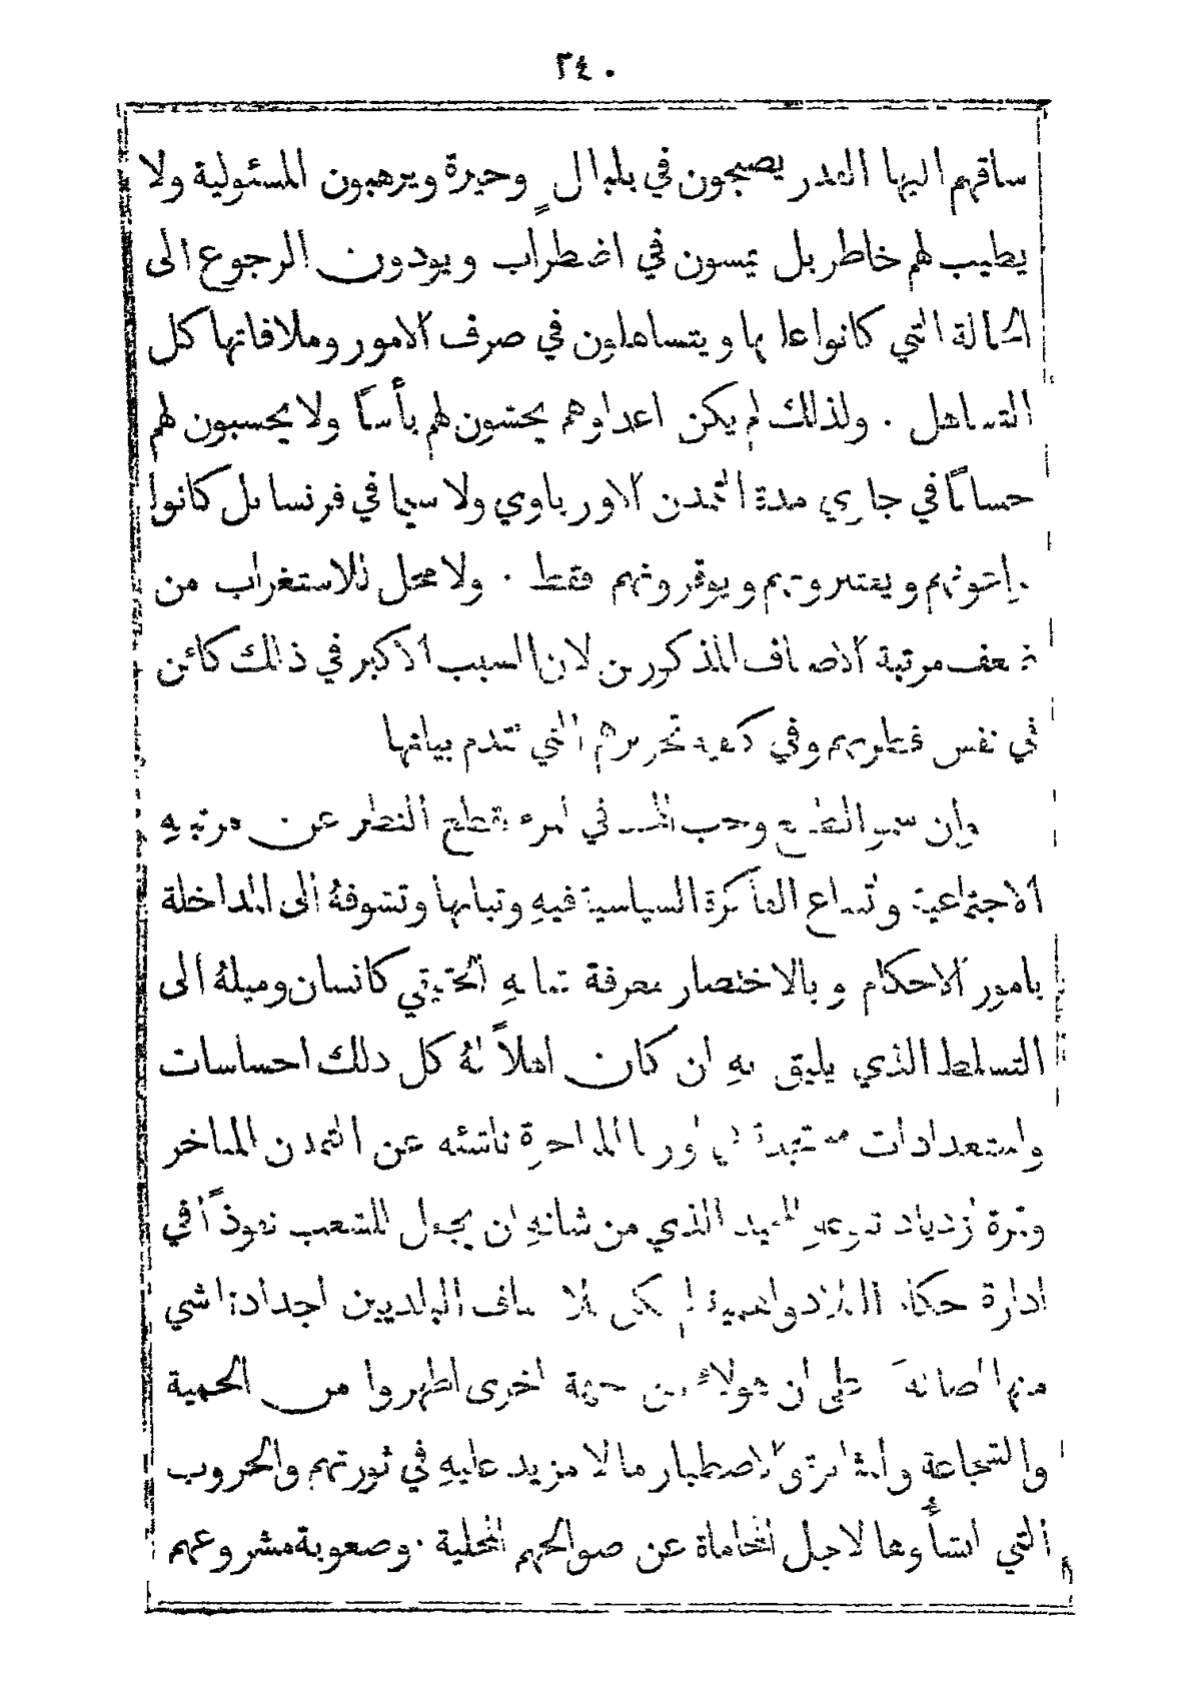 ٢٤٠
ساقهم اليها القدر يصبحون في بلبال وحيرة ويرهبون المسئولية ولا
يطيب لهم خاطر بل يمسون في اضطراب ويودون الرجوع الى
الحالة التي كانوا عليها ويتساهلون في صرف الامور وملافاتها كل
التساهل . ولذلك لم يكن اعداوهم يحسون لهم بأساً ولا يحسبون لهم
حساباً في جاري مدة التمدن الاورباوي ولا سيما في فرنسا بل كانوا
ويعتبرونهم ويوقرونهم فقط . ولا محل للاستغراب من
ضعف مرتبة الاصناف المذكورين لان السبب الاكبر في ذلك كائن
في نفس فطورهم وفي كيفية تحريرهم التي تقدم بيانها
وان سمو الطبع وحب المجد في المرء بقطع النظر عن مرتبتهِ
الاجتماعية واتساع الفاكرة السياسية فيهِ ونباهتها وتشوفهُ الى المداخلة
بامور الاحكام وبالاختصار معرفة مقامهِ الحقيقي كانسان وميلهُ الى
التسلط الذي يليق بهِ ان كان اهلاً لهُ كل ذلك احساسات
واستعدادات مستجدة في اوربا المتاخرة ناشئه عن التمدن المتاخر
وثمرة ازدياد تنوعهِ المجيد الذي من شانهِ ان يجعل للشعب نفوذاً في
ادارة حكام البلاد واهمية لم يكن للاصناف البلديين اجدادنا شي
منها اصالةً على ان هولاء من جهة اخرى اظهروا من الحمية
والشجاعة والمثابرة والاصطبار ما لا مزيد عليهِ في ثورتهم والحروب
التي انشأوها لاجل المحاماة عن صوالحهم المحلية . وصعوبة مشروعهم